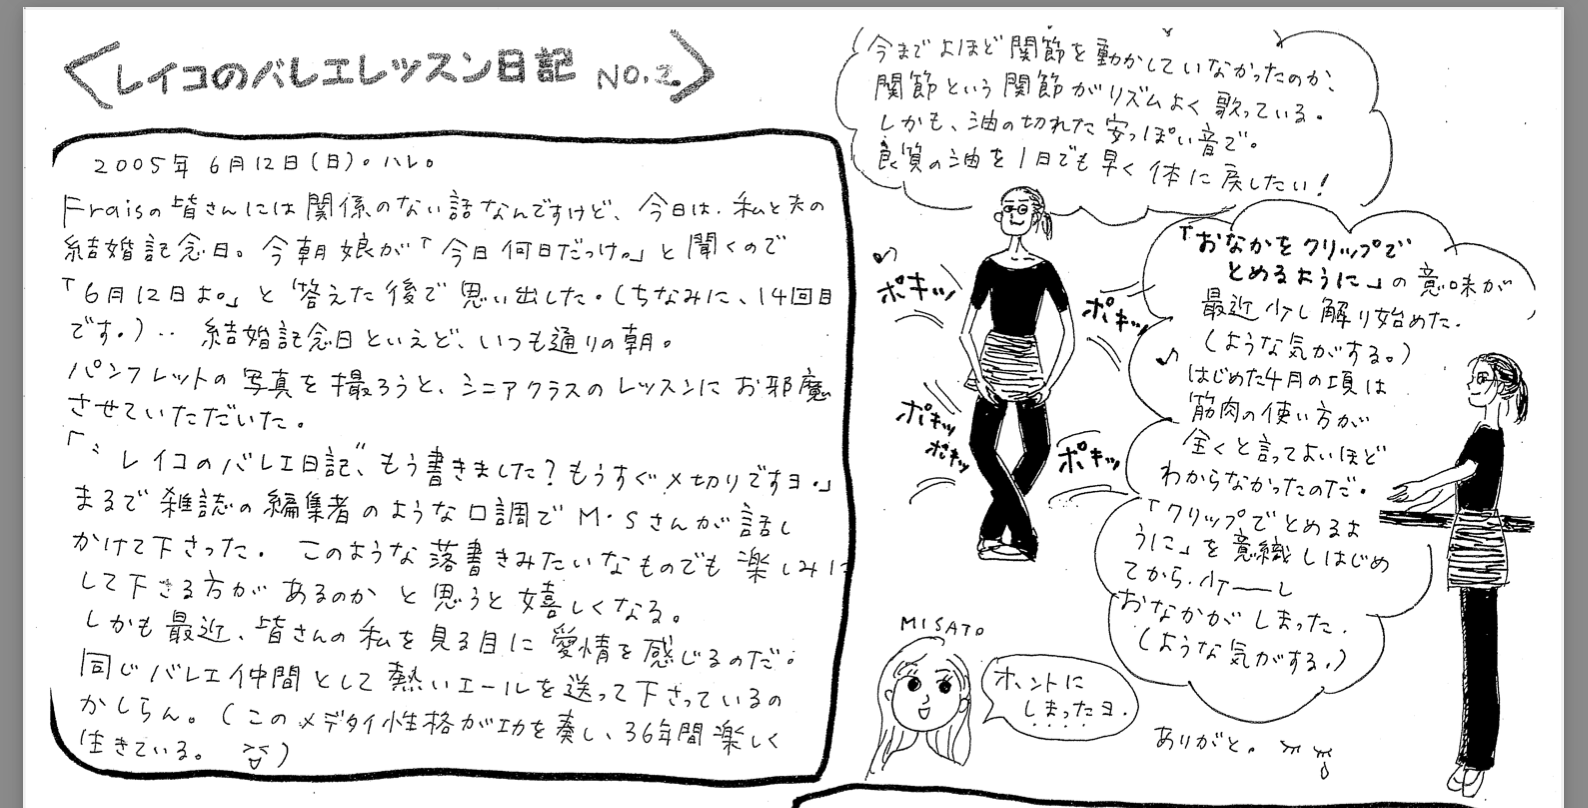 レイコのバレエレッスン日記 NO.2
2005年 6月12日(日)。ハレ。
Fraisの皆さんには関係のない話なんですけど、今日は、私と夫の
結婚記念日。今朝娘が「今日何日だっけ。」と聞くので
「6月12日よ。」と答えた後で思い出した。(ちなみに、14回目
です。)‥ 結婚記念日といえど、いつも通りの朝。
パンフレットの写真を撮ろうと、シニアクラスのレッスンにお邪魔
させていただいた。
「〝レイコのバレエ日記〟、もう書きました?もうすぐ〆切りですヨ。」
まるで雑誌の編集者のような口調でM・Sさんが話し
かけて下さった。このような落書きみたいなものでも楽しみに
して下さる方があるのかと思うと嬉しくなる。
しかも最近、皆さんの私を見る目に愛情を感じるのだ。
同じバレエ仲間として熱いエールを送って下さっているの
かしらん。(このメデタイ性格が功を奏し、36年間楽しく
生きている。)
今までよほど関節を動かしていなかったのか、
関節という関節がリズムよく歌っている。
しかも、油の切れた安っぽい音で。
良質の油を1日でも早く体に戻したい!
♪
ポキッ
ポキッ
ポキッ
ポキッ
ポキッ
「おなかをクリップで
とめるように」の意味が
最近少し解り始めた。
(ような気がする。)
♪
はじめた4月の頃は
筋肉の使い方が
全くと言ってよいほど
わからなかったのだ。
「クリップでとめるよ
うに」を意識しはじめ
てから、少ーーし
おなかがしまった。
(ような気がする。)
MISATO
ホントに
しまったヨ。
ありがと。